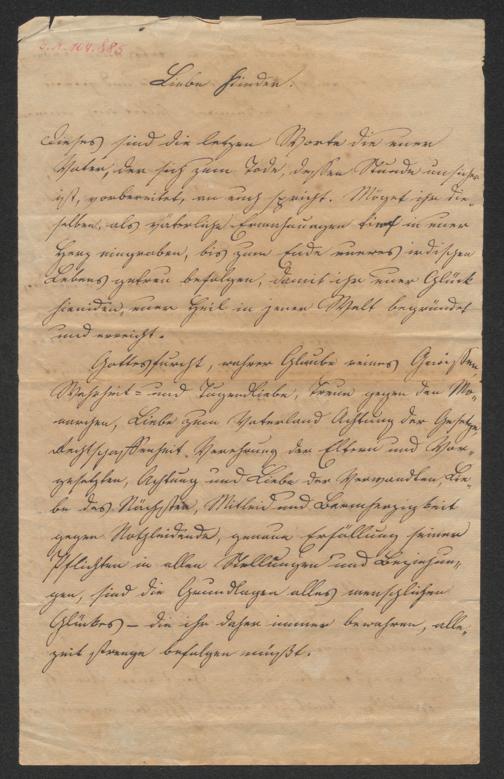 I. N. 104.885
Liebe Kinder.
Dieses sind die letzen Worte die euer
Vater, der sich zum Tode, dessen Stunde unsicher
ist, vorbereitet, an euch spricht. Möget ihr die-
selben, als väterliche Ermahnungen tief in euer
Herz eingraben, bis zum Ende eueres irdischen
Lebens getreu befolgen, damit ihr euer Glück
hienieden, euer Heil in jener Welt begründet
und erreicht.
Gottesfurcht, wahrer Glaube reines Gewissen
Wahrheit- und Tugendliebe, Treue gegen den Mo-
narchen, Liebe zum Vaterland Achtung der Gesetze,
Rechtschaffenheit, Verehrung der Eltern und Vor-
gesetzten, Achtung und Liebe der Verwandten, Lie-
be des Nächsten, Mitleid und Barmherzigkeit
gegen Nothleidende, genaue Erfüllung seiner
Pflichten in allen Stellungen und Beziehun-
gen, sind die Grundlagen alles menschlichen
Glückes – die ihr daher immer bewahren, alle-
zeit strenge befolgen müßt.